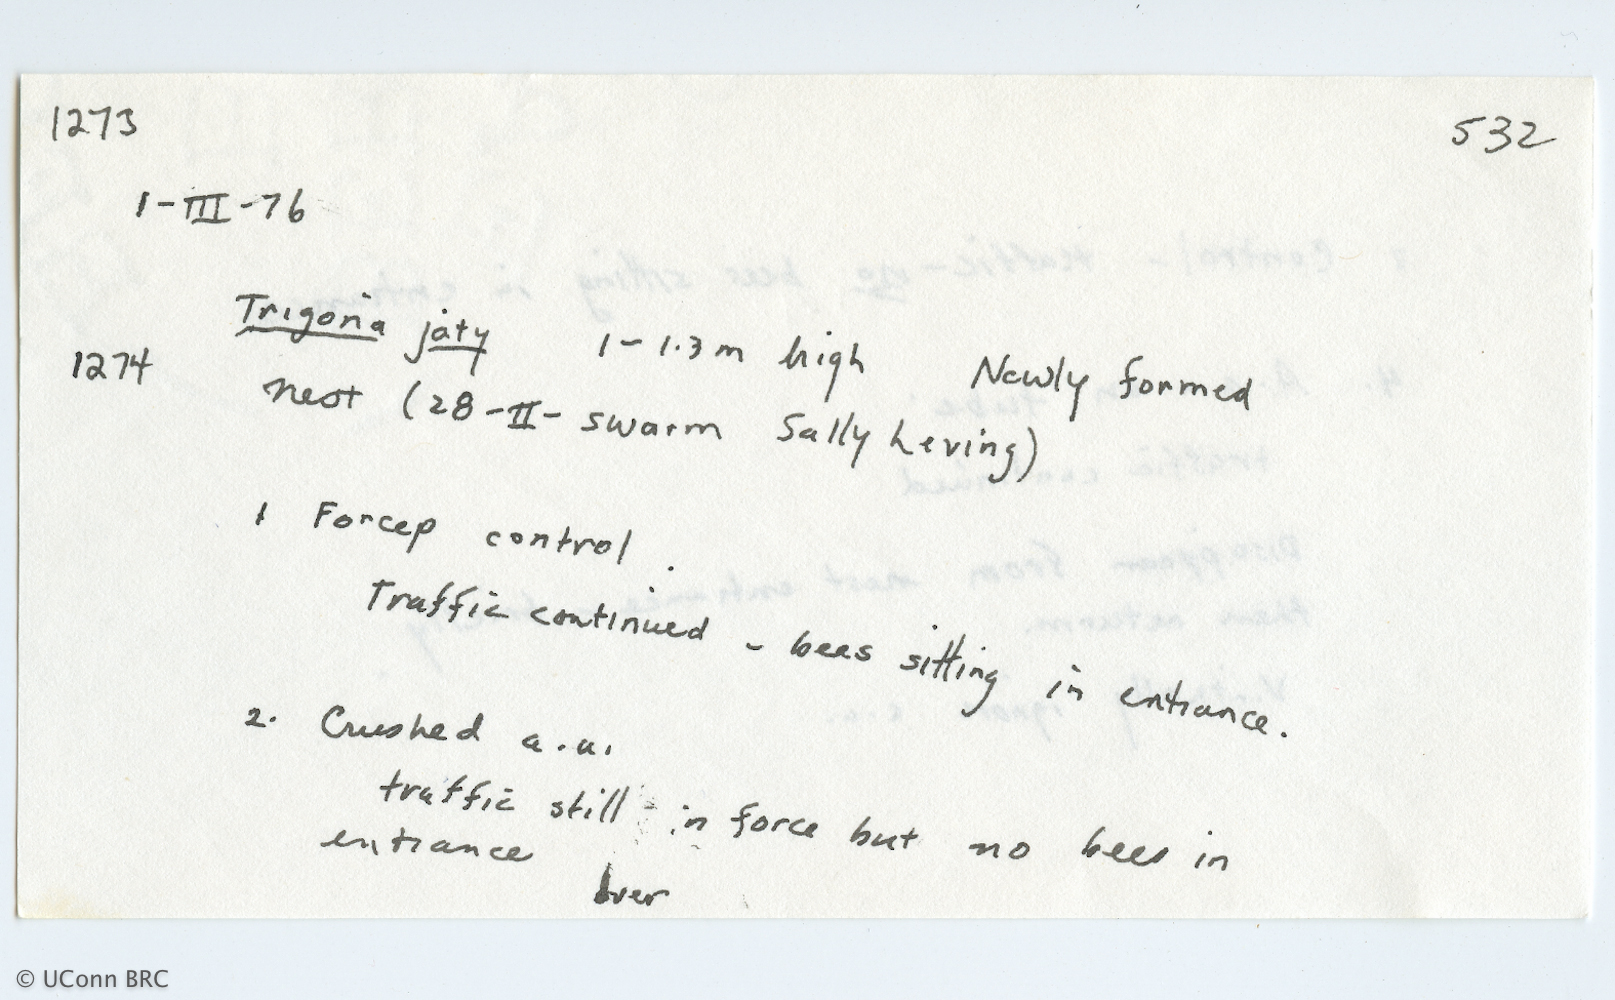 1273
532
1-III-76
Trigona jaty 1-1.3m high Newly formed
1274
nest (28-II- swarm Sally Leving)
1 Forcep control.
Traffic continued - bees sitting in entrance.
2. Crushed a.a.
traffic still in force but no bees in
entrance
over
© UConn BRC